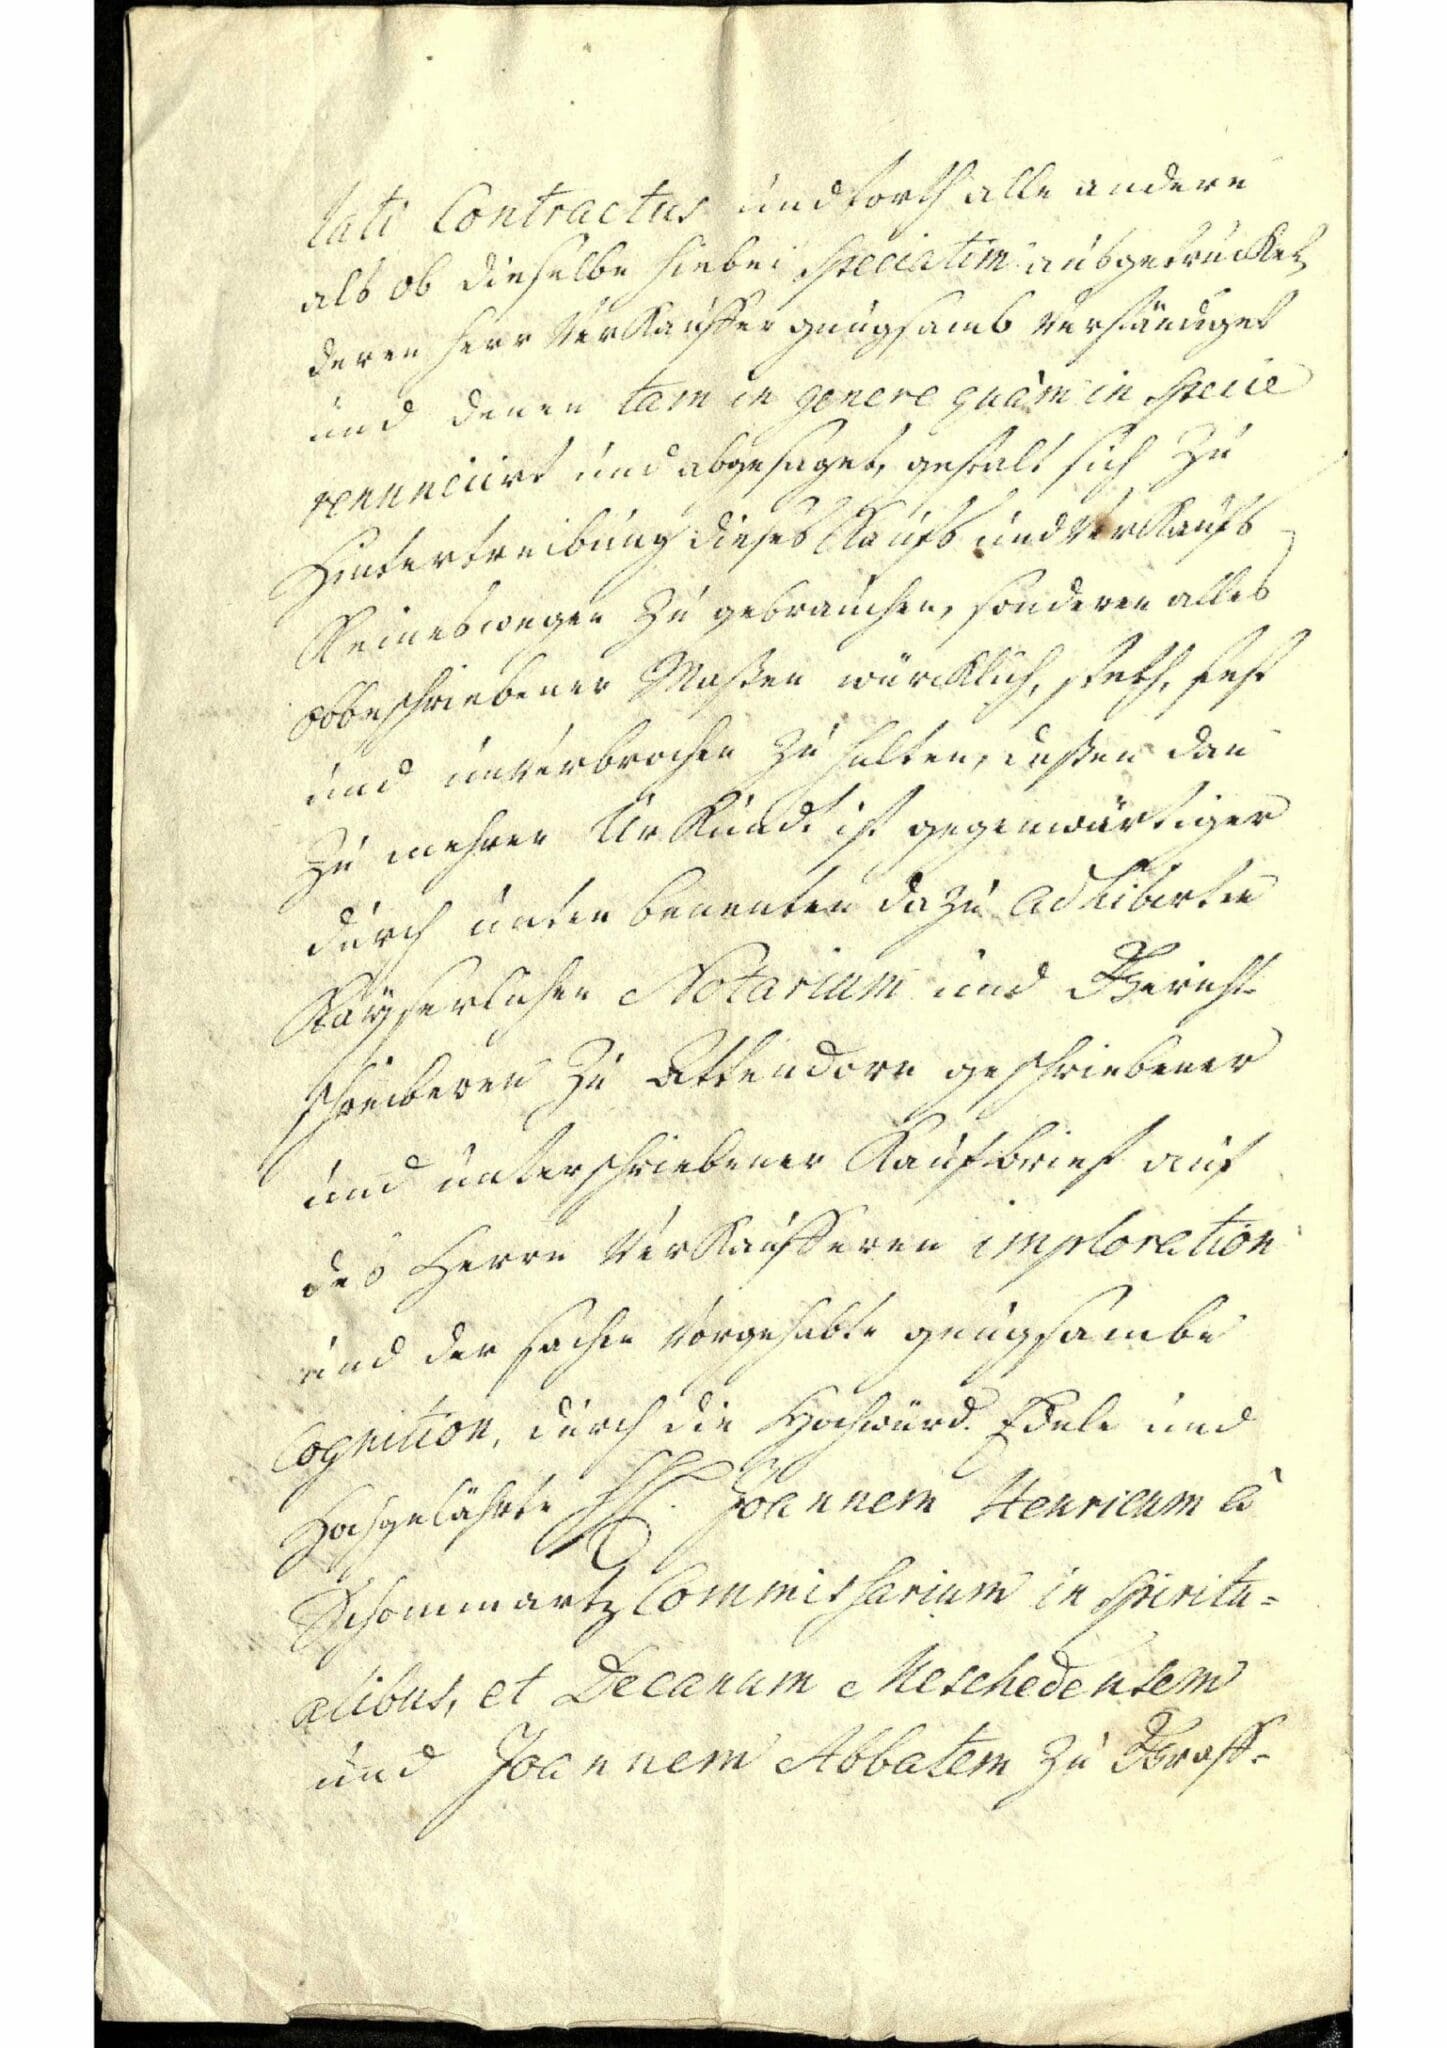 lati Contractus und forth alle andere
als ob dieselbe hiebei speciatim ausgedrucket,
deren Herr Verkauffer gnugsamb verständiget
und denen tam in genere quàm in specie
renunciirt und abgesaget, gestalt sich zu
Hintertreibung dieses Kaufs und Verkaufs
Keineswegen zu gebrauchen, sonderen alles
obbeschriebener Maßen würcklich, steth, fest
und unverbrochen zu halten, deßen dan
zu mehrer Urkund ist gegenwärtiger
durch unten benenten dazu adhibirten
Kayserlichen Notarium und Gericht-
schreiberen zu Attendorn geschriebener
und unterschriebener Kaufbrief auf
des Herrn Verkaufferen imploration
und der sachen vorgehabte gnugsambe
Cognition, durch die Hochwürd. Edele und
Hochgelährte HH. Joannem Henricum à
Schommartz Commissarium in spiritu=
alibus, et Decanum Meschedensem
und Joannem Abbatem zu Graff=